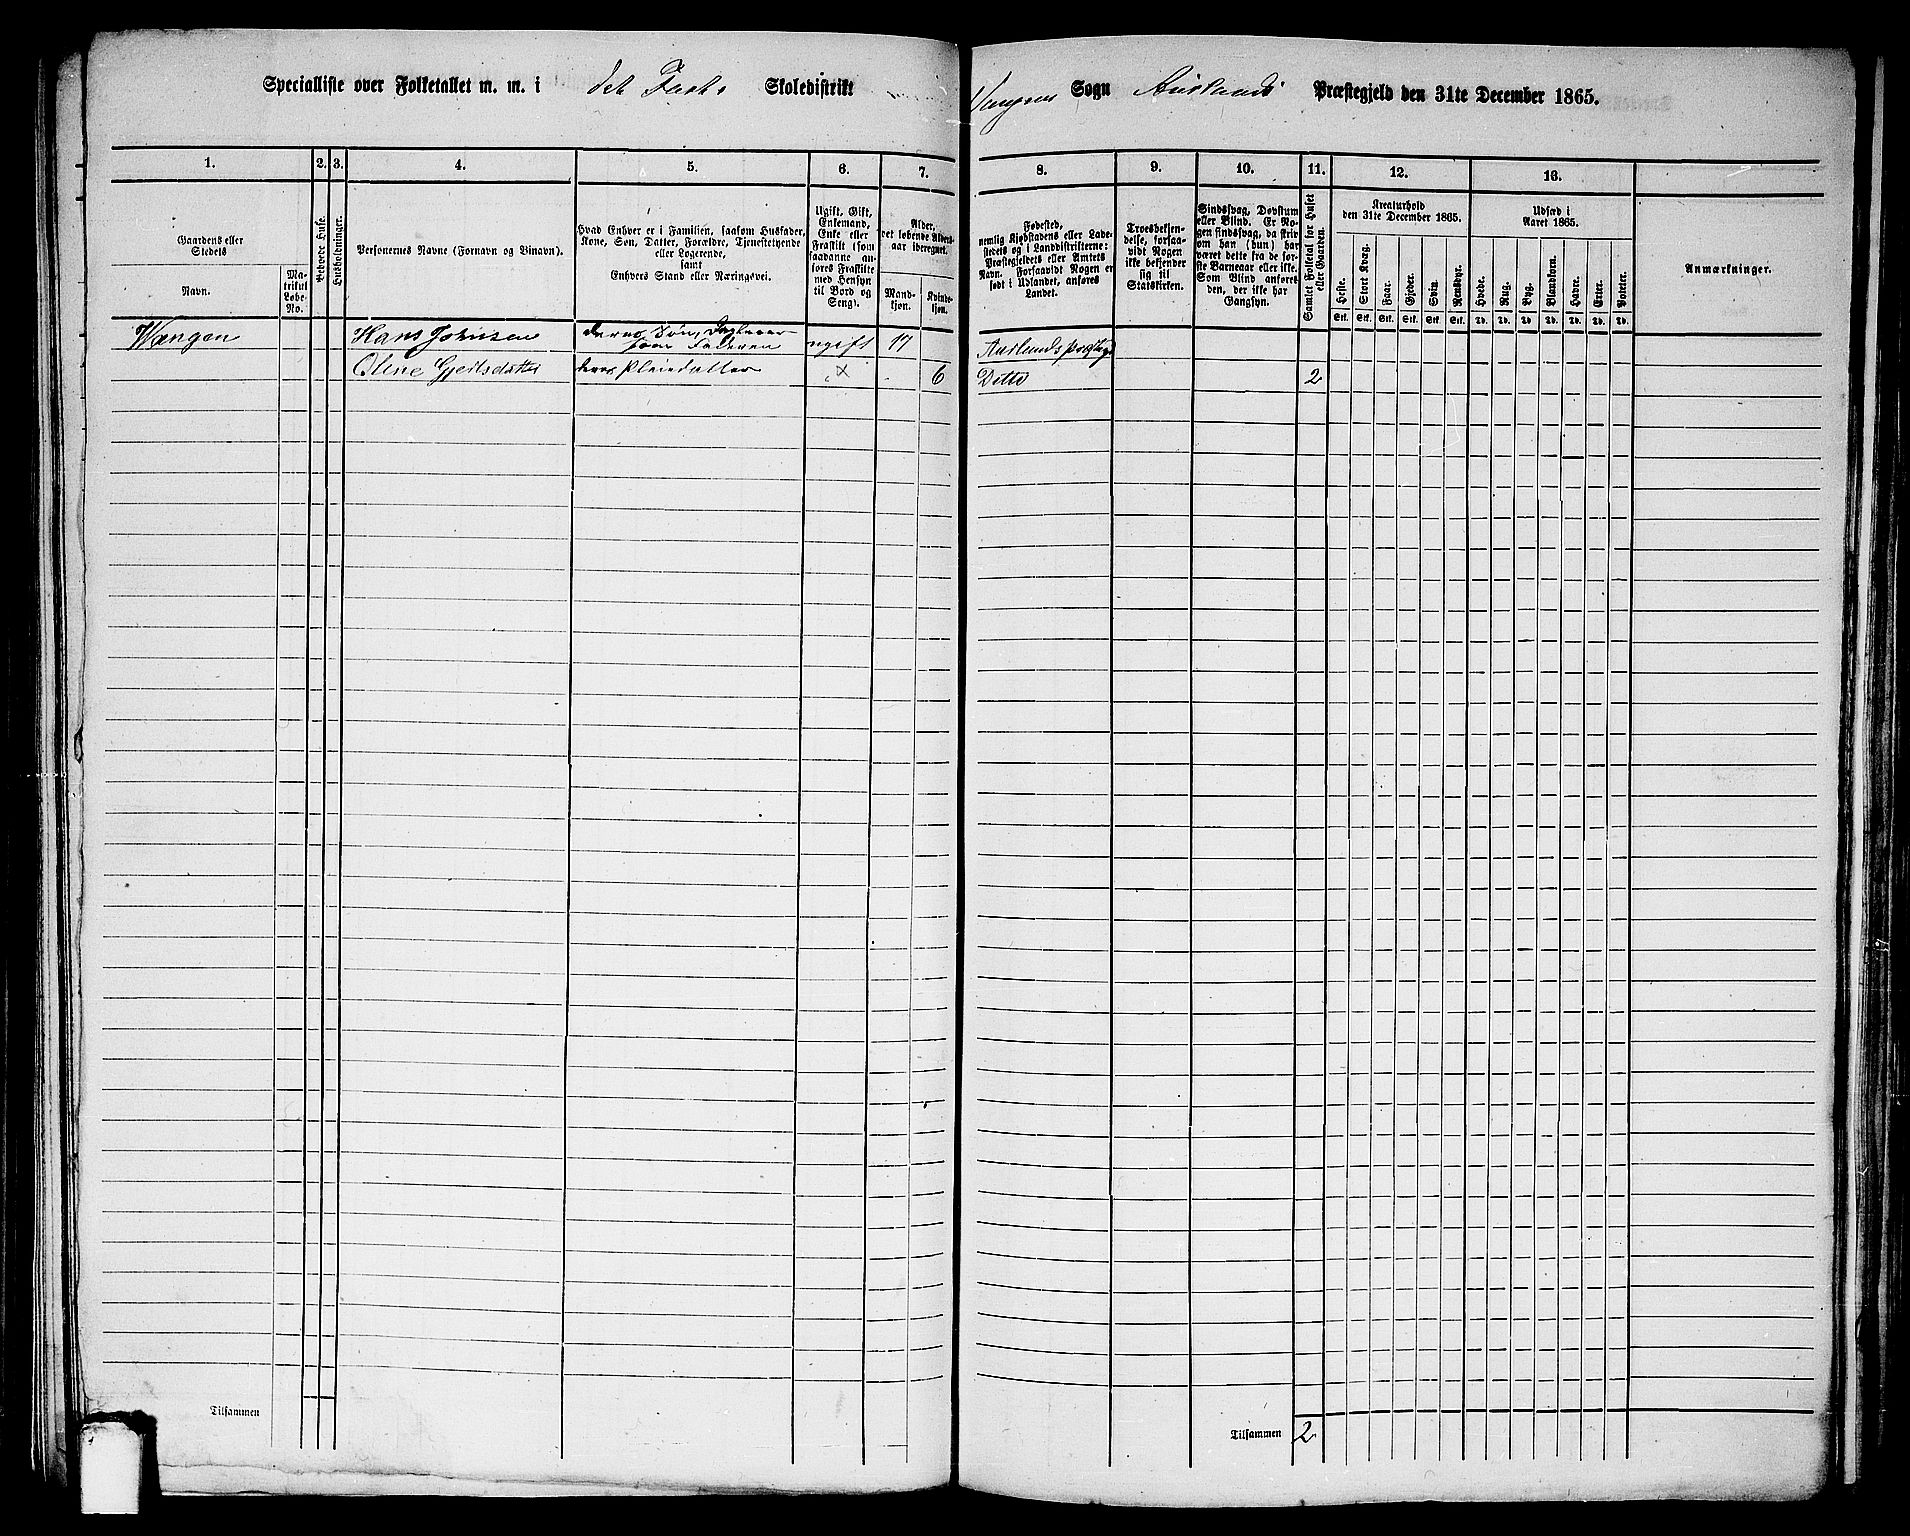 Specialliste over Folketallet m. m. i det Faste Skoledistrikt
Vangens Sogn Aurlands Præstegjeld den 31te December 1865.
1. 2. 3. 4. 5. 6. 7. 8. 9. 10. 11. 12. 13.
Gaardens eller
Stedets
Navn.
Ma-
trikul
Løbe-
No.
Beboede Huse.
Husholdninger.
Personernes Navne (Fornavn og Binavn).
Hvad Enhver er i Familien, saasom Husfader,
Kone, Søn, Datter, Forældre, Tjenestetyende
eller Logerende,
samt
Enhvers Stand eller Næringsvei.
Ugift, Gift,
Enkemand,
Enke eller
Fraskilt (som
saadanne an-
føres Fraskilte
med Hensyn
til Bord og
Seng).
Alder,
det løbende Alders-
aar iberegnet.
Mand-
kjøn.
Kvinde-
kjøn.
Fødested,
nemlig Kjøbstadens eller Lade-
stedets og i Landdistrikterne:
Præstegjeldets eller Amtets
Navn. Forsaavidt Nogen er
født i Udlandet, anføres
Landet.
Troesbekjen-
delse, forsaa-
vidt Nogen
ikke bekjender
sig til
Statskirken.
Sindssvag, Døvstum
eller Blind. Er No-
gen sindssvag, da skriv
om han (hun) har
været dette fra de før-
ste Barneaar eller ikke.
Som Blind anføres
den, der ikke har
Gangsyn.
Samlet Folketal for Huset
eller Gaarden.
Kreaturhold
den 31te December 1865.
Heste. Stort Kvæg. Faar. Gjeder. Svin. Rensdyr.
Stk. Stk. Stk. Stk. Stk. Stk.
Udsæd i
Aaret 1865.
Hvede. Rug. Byg. Blandkorn. Havre. Erter. Poteter.
Td. Td. Td. Td. Td. Td. Td.
Anmærkninger.
Wangen Hans Johnsen deres Søn, Daglønner som Faderen ugift 17 Aurlands Prstgj
Oline Gjertsdatter deres Pleiedatter x 6 Ditto 2
Tilsammen
Tilsammen 2